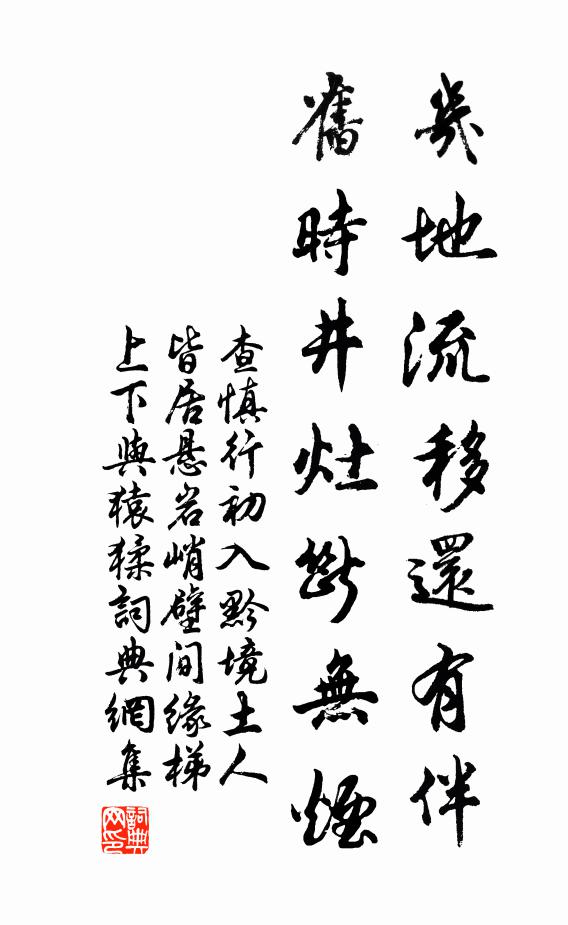 幾地流移還有伴
舊時井灶斷無煙
查慎行初入黔境土人
皆居悬岩峭壁间缘梯
上下與猿猱詞典網集
詞典
网印